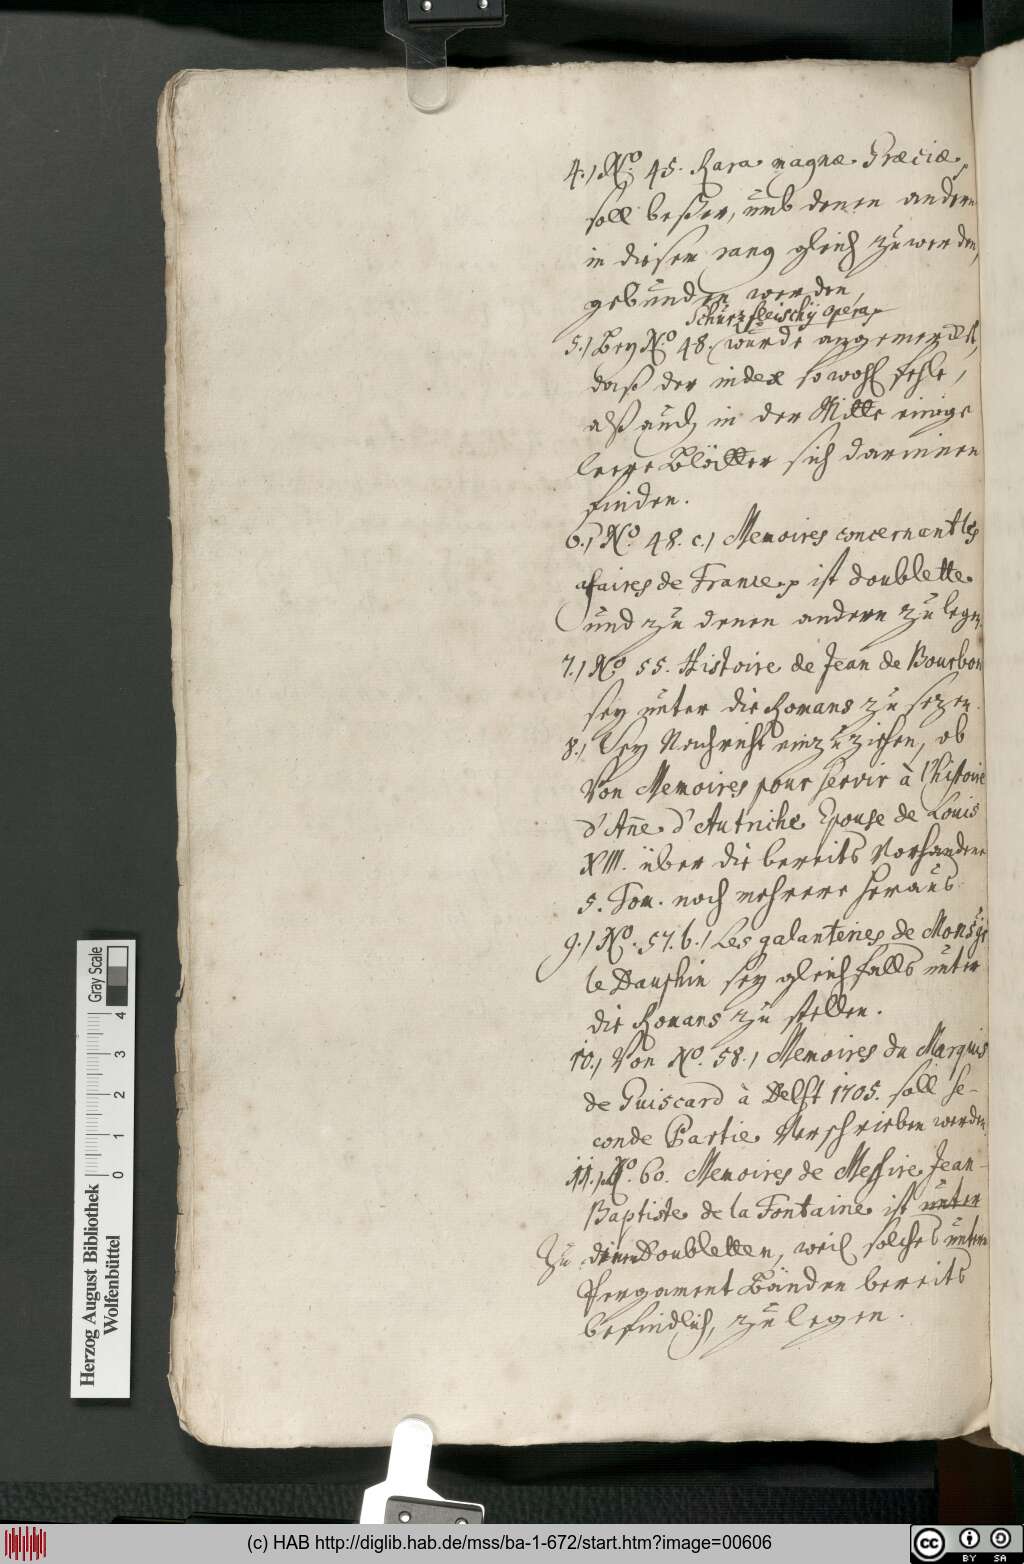 4.) No. 45. Rara magnæ Græciæ
soll beßer, umb denen andern
in diesem rang gleich zu werden,
gebunden werden,
Schurzfleischij opera
5.) Bey No. 48. wurde angemerckt,
daß der index sowohl fehle,
alß auch in der Mitte einige
leere Blätter sich darinnen
finden.
6.) No. 48. c.) Memoires concernant les
afaires de France ist doublette
und zu denen andern zu legen,
7.) No 55. Histoire de Jean de Bourbon
sey unter die Romans zu sezen.
8.) Sey Nachricht einzuziehen, ob
Von Memoires pour servir à l'histoire
d'Añe d'Autriche Epouse de Louis
XIII. über die bereits Vorhandene
5. Tom. noch mehrere heraus
9.) No. 57. b.) Les galanteries de Monsgr
le Dauphin sey gleichfalls unter
die Romans zu stellen.
10.) Von No. 58.) Memoires du Marquis
de Guiscard à Delft 1705. soll se-
conde Partie Verschrieben werden.
11.) No. 60. Memoires de Messire Jean
Baptiste de la Fontaine ist unter
Zu denen Doubletten, weil solches unterm
Pergament Bänden bereits
befindlich, zu legen.
Gray Scale
0 1 2 3 4
Herzog August Bibliothek
Wolfenbüttel
(c) HAB http://diglib.hab.de/mss/ba-1-672/start.htm?image=00606
cc BY SA